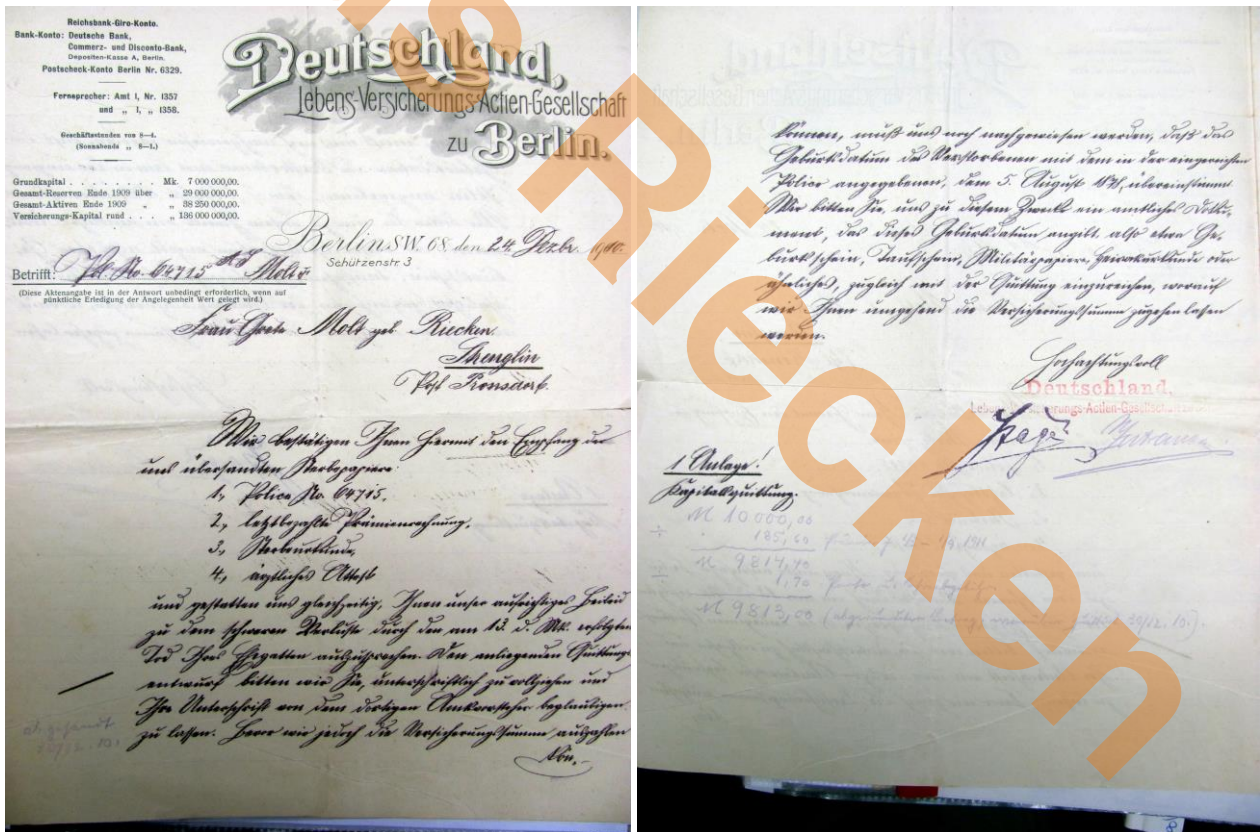 Reichsbank-Giro-Konto.
Bank-Konto: Deutsche Bank,
Commerz- und Disconto-Bank,
Depositen-Kasse A, Berlin.
Postscheck-Konto Berlin Nr. 6329.
Fernsprecher: Amt I, Nr. 1357
und „ I, „ 1358.
Geschäftsstunden von 8—4.
(Sonnabends „ 8—1.)
Grundkapital . . . . . . . . Mk. 7 000 000,00.
Gesamt-Reserven Ende 1909 über „ 29 000 000,00.
Gesamt-Aktiven Ende 1909 „ „ 38 250 000,00.
Versicherungs-Kapital rund . . . „ 136 000 000,00.
Deutschland,
Lebens-Versicherungs-Actien-Gesellschaft
zu Berlin.
Berlin SW. 68. den 24. Dezbr. 1910.
Schützenstr. 3
Betrifft: Pol. No. 64715 Molt
(Diese Aktenangabe ist in der Antwort unbedingt erforderlich, wenn auf
pünktliche Erledigung der Angelegenheit Wert gelegt wird.)
Frau Grete Molt geb. Riecken
Strenglin
Post Pronsdorf.
Wir bestätigen Ihnen hiermit den Empfang der
uns übersandten Sterbepapiere:
1., Police No. 64715,
2., letztbezahlte Prämienrechnung,
3., Sterbeurkunde,
4., ärztliches Attest
und gestatten uns gleichzeitig, Ihnen unser aufrichtiges Beileid
zu dem schweren Verluste durch den am 13. d. Mts. erfolgten
Tod Ihres Ehegatten auszusprechen. Den anliegenden Quittungs-
entwurf bitten wir Sie, unterschriftlich zu vollziehen und
Ihre Unterschrift von dem dortigen Amtsvorsteher beglaubigen
zu lassen. Bevor wir jedoch die Versicherungssumme auszahlen
abgesandt
können, muß uns noch nachgewiesen werden, daß das
Geburtsdatum des Verstorbenen mit dem in der eingereichten
Police angegebenen, dem 5. August, übereinstimmt.
Wir bitten Sie, uns zu diesem Zweck ein amtliches Doku-
ment, das dieses Geburtsdatum angibt, also etwa Ge-
burtsschein, Taufschein, Militärpapiere, Heiratsurkunde oder
ähnliches, zugleich mit der Quittung einzureichen, worauf
wir Ihnen umgehend die Versicherungssumme zugehen lassen
werden.
Hochachtungsvoll
Deutschland,
Lebens-Versicherungs-Actien-Gesellschaft
1 Anlage!
Kapitalquittung.
M 10 000,00
÷ 185,60
M 9814,40
1,40
M 9813,00
Riecken